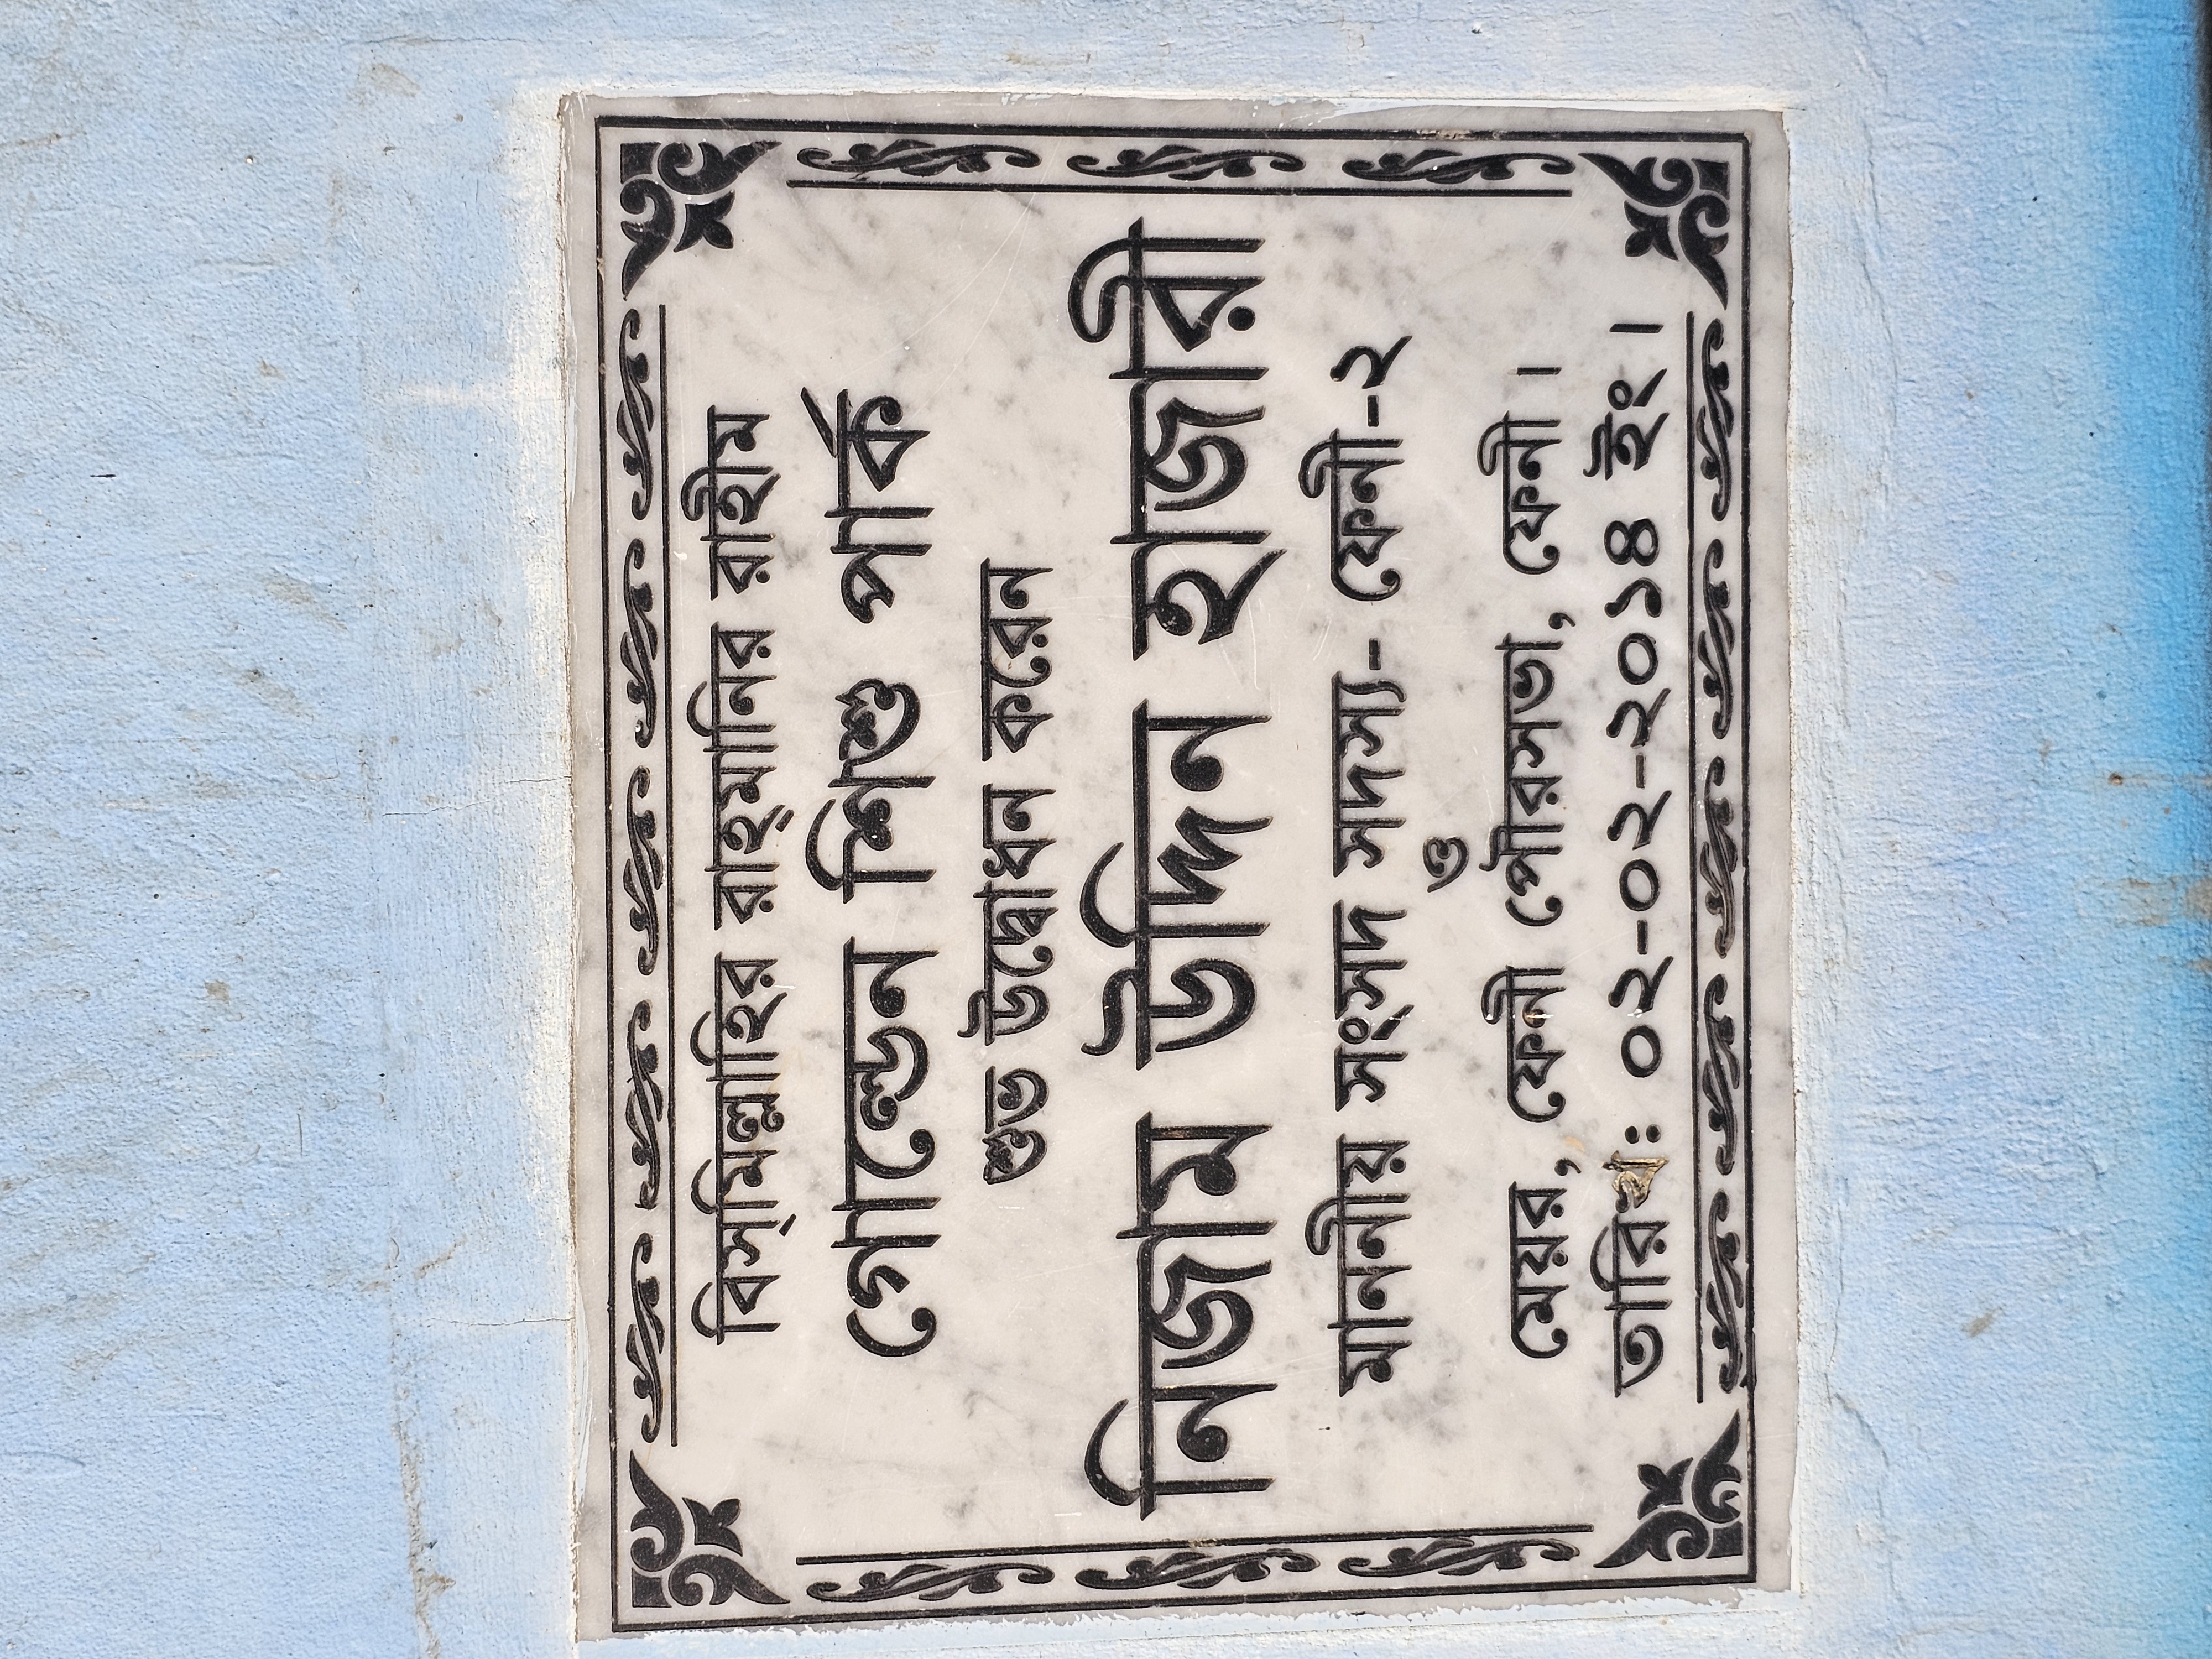 বিস্‌মিল্লাহির রাহ্‌মানির রাহীম
গোল্ডেন শিশু পার্ক
শুভ উদ্বোধন করেন
নিজাম উদ্দিন হাজারী
মাননীয় সংসদ সদস্য- ফেনী-২
ও
মেয়র, ফেনী পৌরসভা, ফেনী।
তারিখ: ০২-০২-২০১৪ ইং।